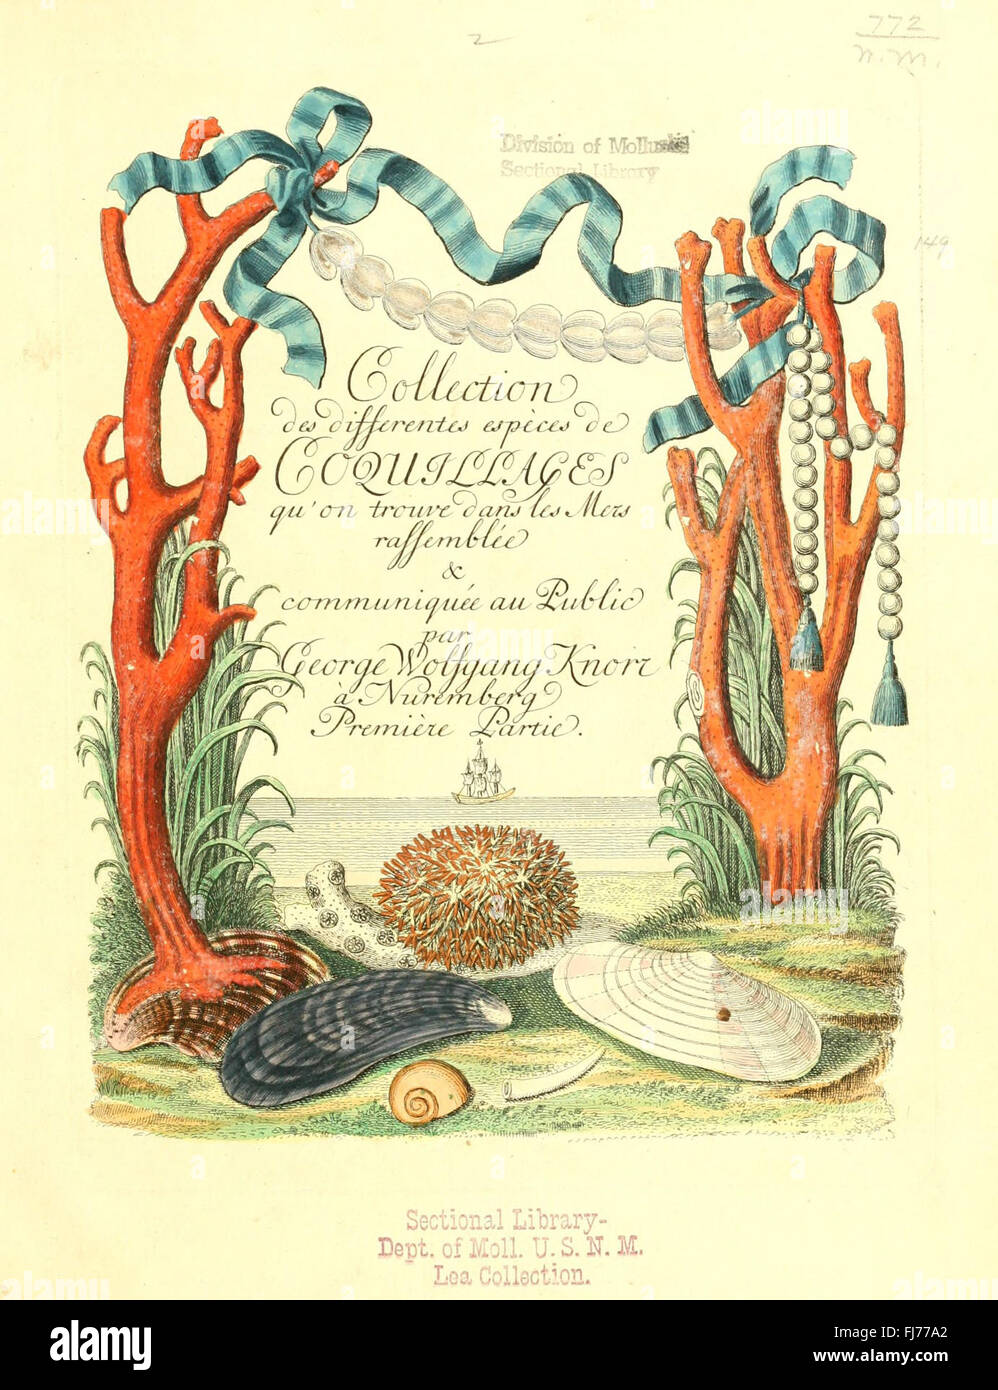 772
n. M.
2
Division of Mollusks
Sectional Library
149
Collection
des differentes espèces de
COQUILLAGES
qu'on trouve dans les Mers
rassemblée
&
communiquée au Public
par
George Wolfgang Knorr
à Nuremberg
Première Partie.
Sectional Library-
Dept. of Moll. U. S. N. M.
Lea Collection.
alamy
Image ID: FJ77A2
www.alamy.com